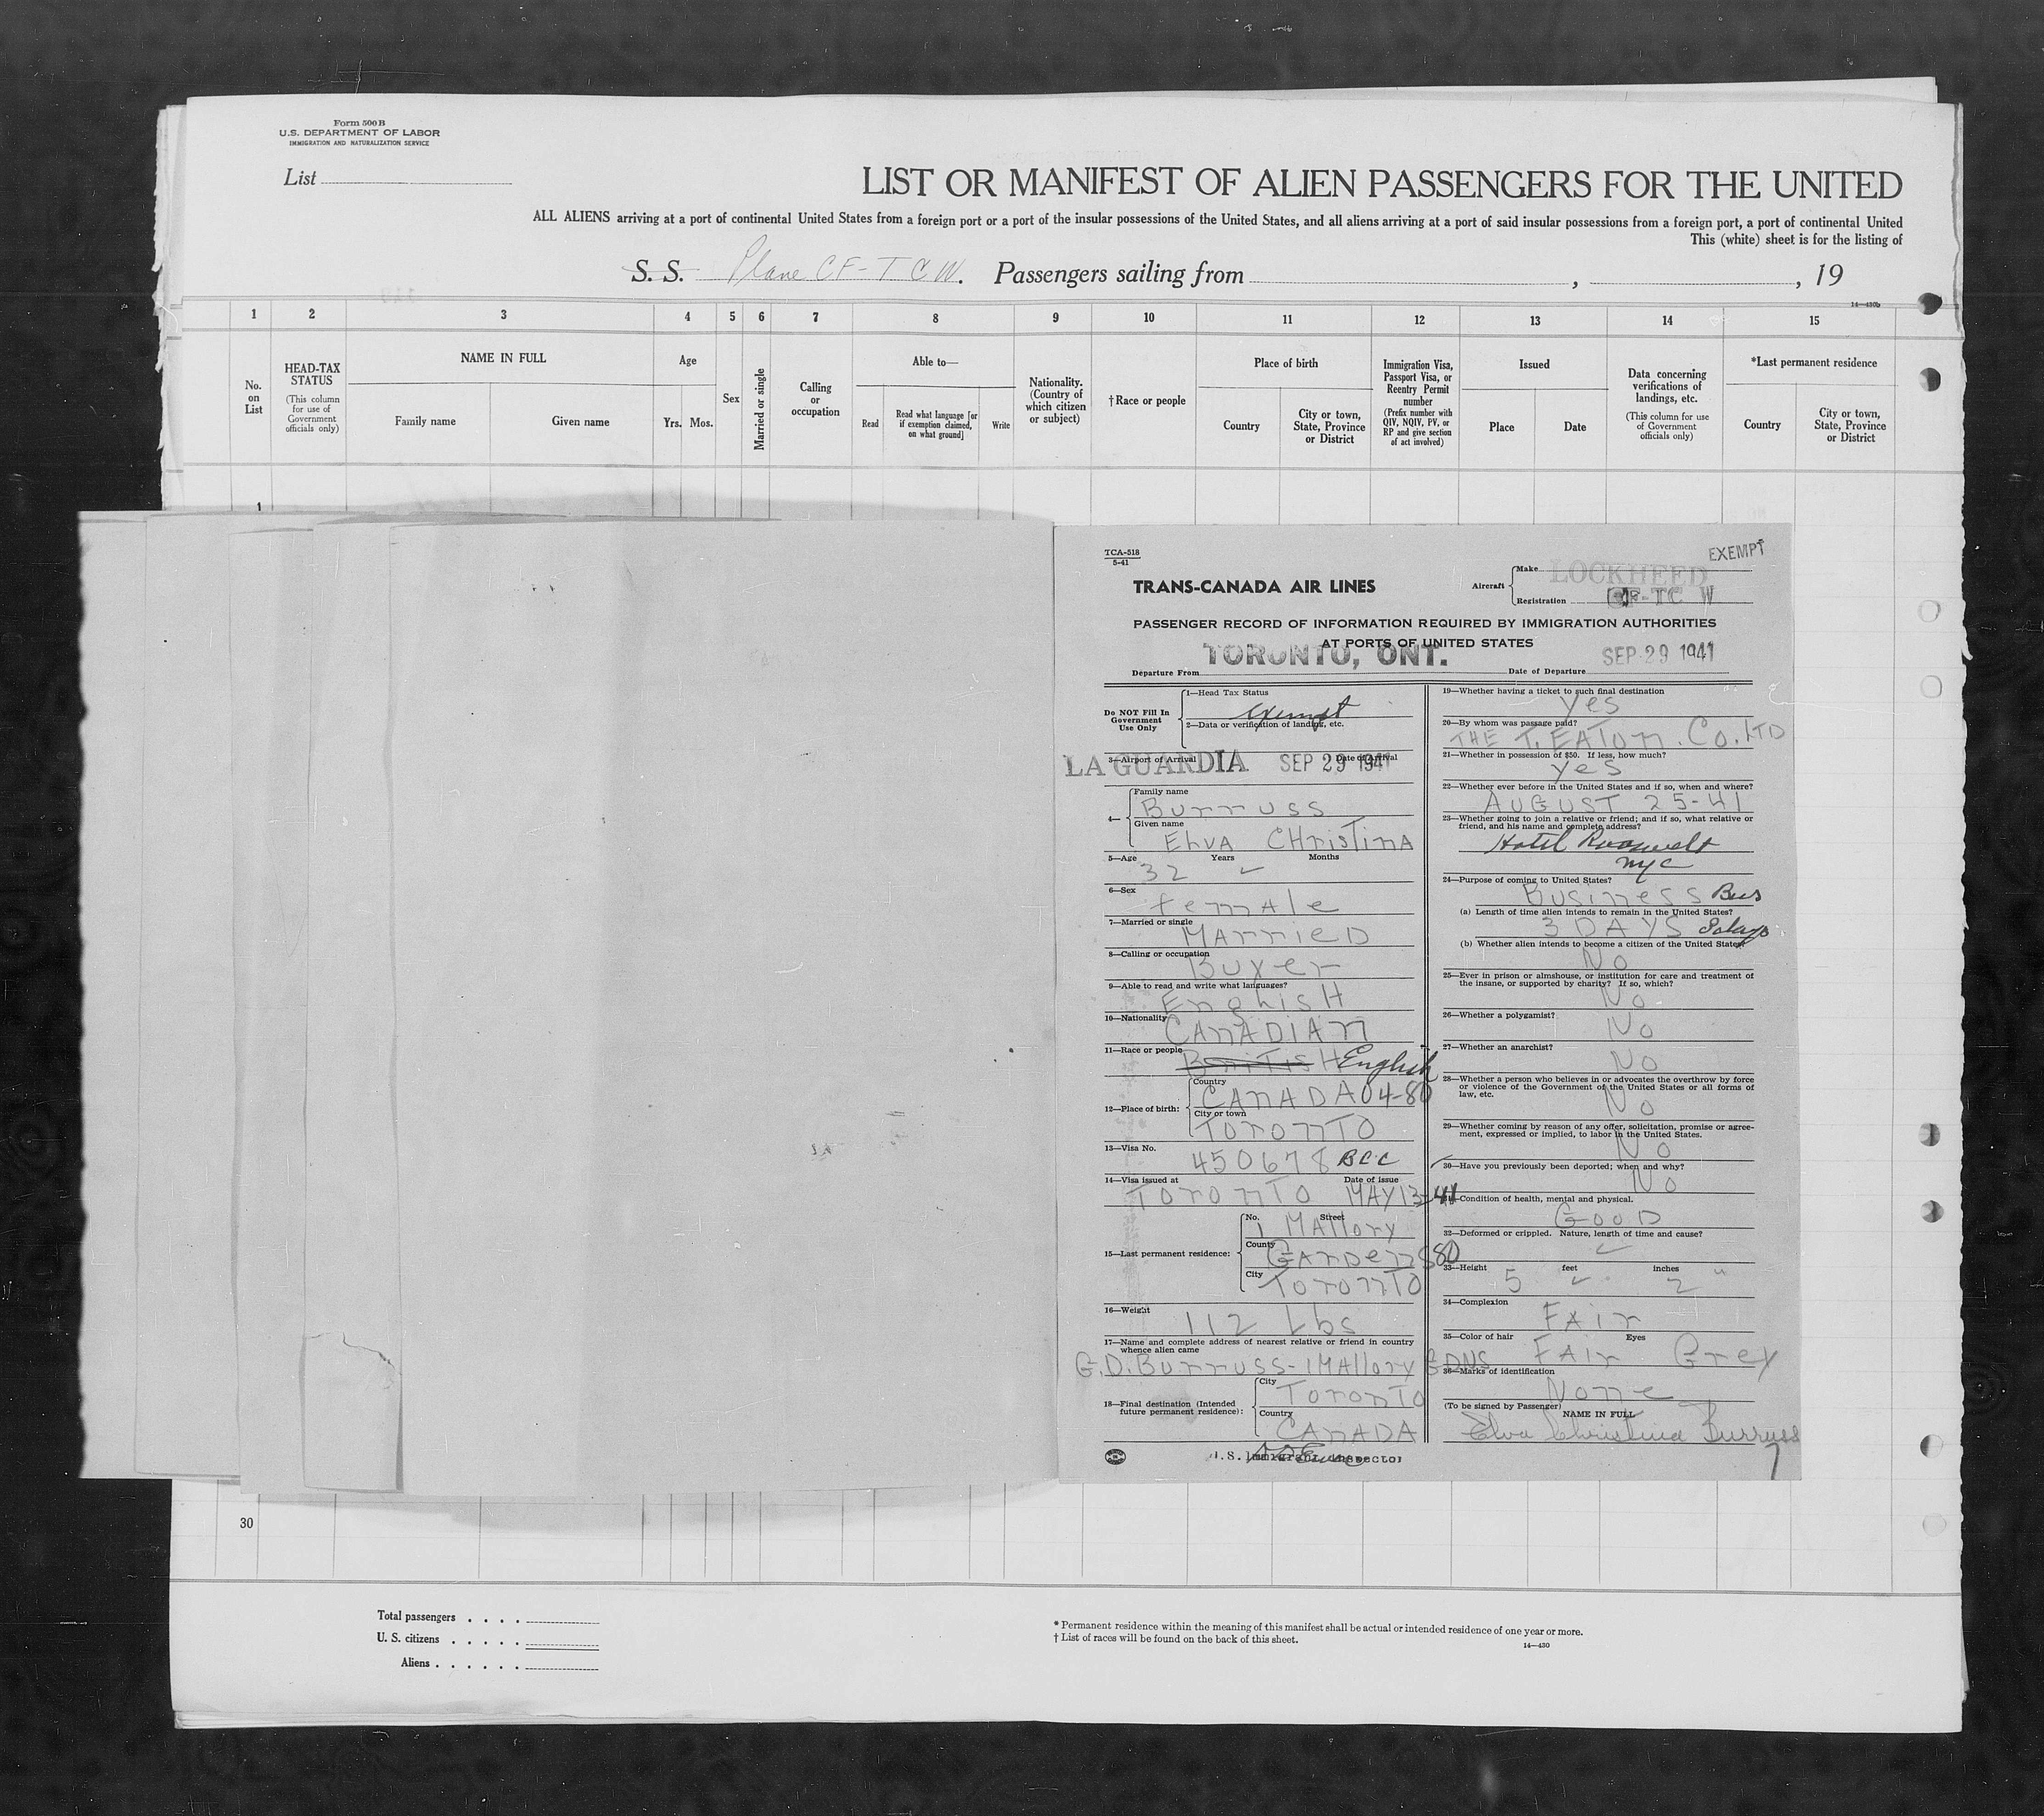 Form 500 B
U.S. DEPARTMENT OF LABOR
IMMIGRATION AND NATURALIZATION SERVICE
List
LIST OR MANIFEST OF ALIEN PASSENGERS FOR THE UNITED
ALL ALIENS arriving at a port of continental United States from a foreign port or a port of the insular possessions of the United States, and all aliens arriving at a port of said insular possessions from a foreign port, a port of continental United
This (white) sheet is for the listing of
S. S. Plane CF-TCW. Passengers sailing from , , 19
14—430b
1 2 3 4 5 6 7 8 9 10 11 12 13 14 15
No. on List
HEAD-TAX STATUS
(This column for use of Government officials only)
NAME IN FULL
Family name
Given name
Age
Yrs. Mos.
Sex
Married or single
Calling or occupation
Able to—
Read
Read what language [or if exemption claimed, on what ground]
Write
Nationality. (Country of which citizen or subject)
†Race or people
Place of birth
Country
City or town, State, Province or District
Immigration Visa, Passport Visa, or Reentry Permit number
(Prefix number with QIV, NQIV, PV, or RP and give section of act involved)
Issued
Place
Date
Data concerning verifications of landings, etc.
(This column for use of Government officials only)
*Last permanent residence
Country
City or town, State, Province or District
1
TCA-518
5-41
EXEMPT
TRANS-CANADA AIR LINES
Aircraft
Make LOCKHEED
Registration CF-TC W
PASSENGER RECORD OF INFORMATION REQUIRED BY IMMIGRATION AUTHORITIES
AT PORTS OF UNITED STATES
Departure From TORONTO, ONT. Date of Departure SEP 29 1941
Do NOT Fill In Government Use Only
1—Head Tax Status
Exempt
2—Data or verification of landing, etc.
3—Airport of Arrival Date of Arrival
LA GUARDIA SEP 29 1941
4—
Family name
Burruss
Given name
Elva CHrisTinA
5—Age Years Months
32 ✓
6—Sex
femAle
7—Married or single
MArrieD
8—Calling or occupation
Buyer
9—Able to read and write what languages?
EnglisH
10—Nationality
CAnADIAn
11—Race or people
BriTisH English
12—Place of birth:
Country
CAnADA 04-80
City or town
ToronTO
13—Visa No.
450678 BCC
14—Visa issued at Date of issue
ToronTo MAY 13-41
15—Last permanent residence:
No. Street
1 MAllory
County
GArDenS 80
City
ToronTO
16—Weight
112 Lbs
17—Name and complete address of nearest relative or friend in country whence alien came
G.D. Burruss-1 MAllory GDNS
18—Final destination (Intended future permanent residence):
City
ToronTO
Country
CAnADA
U.S. Immigrant Inspector
19—Whether having a ticket to such final destination
Yes
20—By whom was passage paid?
THE T. EATon. Co. LTD
21—Whether in possession of $50. If less, how much?
Yes
22—Whether ever before in the United States and if so, when and where?
AUGUST 25-41
23—Whether going to join a relative or friend; and if so, what relative or friend, and his name and complete address?
Hotel Roosevelt
NYC
24—Purpose of coming to United States?
Business Bus
(a) Length of time alien intends to remain in the United States?
3 DAYS 3 days
(b) Whether alien intends to become a citizen of the United States?
No
25—Ever in prison or almshouse, or institution for care and treatment of the insane, or supported by charity? If so, which?
No
26—Whether a polygamist?
No
27—Whether an anarchist?
No
28—Whether a person who believes in or advocates the overthrow by force or violence of the Government of the United States or all forms of law, etc.
No
29—Whether coming by reason of any offer, solicitation, promise or agreement, expressed or implied, to labor in the United States.
No
30—Have you previously been deported; when and why?
No
31—Condition of health, mental and physical.
GooD
32—Deformed or crippled. Nature, length of time and cause?
✓
33—Height feet inches
5 ✓ 2 "
34—Complexion
FAir
35—Color of hair Eyes
FAir Grey
36—Marks of identification
None
(To be signed by Passenger)
NAME IN FULL
Elva Christina Burruss
7
30
Total passengers . . . .
U. S. citizens . . . . .
Aliens . . . . . .
* Permanent residence within the meaning of this manifest shall be actual or intended residence of one year or more.
† List of races will be found on the back of this sheet.
14—430